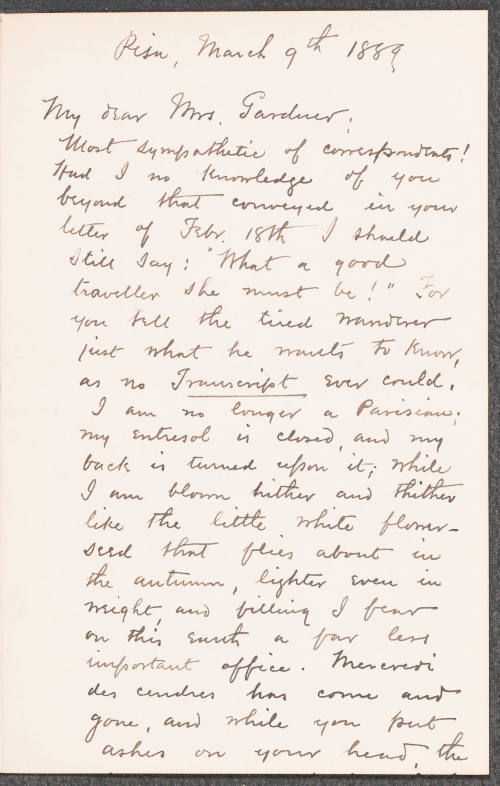 Pisa, March 9th 1889
My dear Mrs. Gardner;
Most sympathetic of correspondents!
Had I no knowledge of you
beyond that conveyed in your
letter of Febr. 18th I should
still say: "What a good
traveller she must be!" For
you tell the tired wanderer
just what he wants to know,
as no Transcript ever could.
I am no longer a Parisian;
my entresol is closed, and my
back is turned upon it; while
I am blown hither and thither
like the little white flower-
seed that flies about in
the autumn, lighter even in
weight, and filling I fear
on this earth a far less
important office. Mercredi
des cendres has come and
gone, and while you put
ashes on your head, the